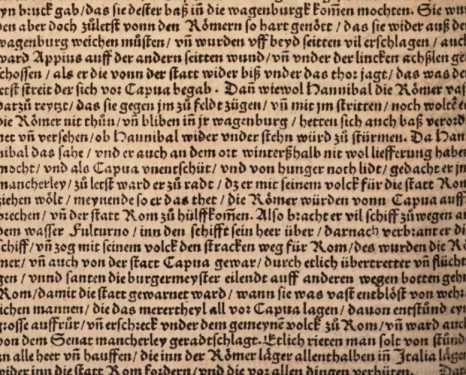 yn bruck gab / das sie dester baß in̄ die wagenburgk kom̄en mochten. Sie wu
en aber doch zůletst vonn den Römern so hart genött / das sie wider auß de
wagenburg weichen můsten / vn̄ wurden vff beyd seitten vil erschlagen / auc
ward Appius auff der andern seitten wund / vn̄ vnder der lincken achßlen ge
schossen / als er die vonn der statt wider biß vnder das thor jagt / das was de
etst streit der sich vor Capua begab . Dan̄ wiewol Hannibal die Römer vaſ
datzů reytzt / das sie gegen jm zů feldt zůgen / vn̄ mit jm stritten / noch wolt e
ie Römer nit thůn / vn̄ bliben in̄ jr wagenburg / hetten sich auch baß verord
net vn̄ versehen / ob Hannibal wider vnder stehn würd zů stürmen. Da Han
nibal das sahe / vnd er auch an dem ort winterßhalb nit wol liefferung habe
mocht / vnd als Capua vnentschüt / vnd von hunger noch lidt / gedacht er jn
mancherley / zů letst ward er zů radt / dz er mit seinem volck für die statt Ro
ziehen wölt / meynende so er das thet / die Römer würden vonn Capua auff
brechen / vn̄ der statt Rom zů hülff kom̄en. Also bracht er vil schiff zů wegen a
dem wasser Fulturno / inn den schifft sein heer über / darnach verbrant er di
schiff / vn̄ zog mit seinem volck den stracken weg für Rom / des wurden die R
mer / vn̄ auch von der statt Capua gewar / durch etlich übertretter vn̄ flücht
gen / vnnd santen die burgermeyster eilendt auff anderen wegen botten geh
Rom / damit die statt gewarnet ward / wann sie was vast entblöst von wehr
ichen mannen / die das merertheyl all vor Capua lagen / dauon entstünd ey
grosse auffrůr / vn̄ erschreck vnder dem gemeyne volck zů Rom / vn̄ ward auc
von dem Senat mancherley geradtschlagt. Etlich rieten man solt von stünd
an alle heer vn̄ hauffen / die inn der Römer läger allenthalben in̄ Italia läg
wider inn die statt Rom fordern / vnd die vor allen dingen verhüten. Dara